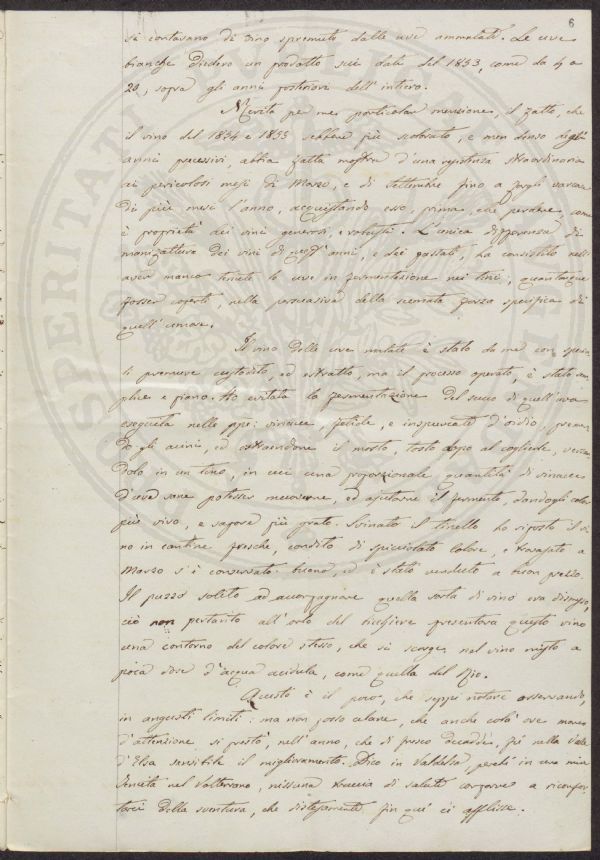 6
si contavano di vino spremuto dalle uve ammalate. Le uve
bianche diedero un prodotto sui dati del 1853, come da 4 a
20, sopra gli anni posteriori dell'intiero.
Merita per me particolar menzione, il fatto, che
il vino del 1854 e 1855 sebbene più scolorato, e men denso degli
anni precessivi, abbia fatta mostra d'una resistenza straordinaria
ai pericolosi mesi di Marzo, e di Settembre fino a
di più mesi l'anno, acquistando esso, prima, che perdere, come
è proprietà dei vini generosi, e robusti. L'unica differenza di
manifattura dei vini di quest'anni, e dei passati, ha consistito nell'
aver manco tenute le uve in fermentazione nei tini, quantunque
fosser coperti, nella persuasiva della scemata forza specifica di
quell'umore.
Il vino delle uve malate è stato da me con specia
li premure custodito, ed estratto, ma il processo operato, è stato sem
plice e piano. Ho evitata la fermentazione del succo di quell'uva
eseguita nelle vinacce, fetide, e d'oidio, premen
do gli acini, ed estraendone il mosto, tosto dopo al cogliere, versan
dolo in un tino, in cui una proporzionale quantità di vinacce
d'uve sane potesse muoverne, ed ajutarne il fermento, dandogli color
più vivo, e sapore più grato. Svinato il tinello ho riposto il vi
no in cantine fresche, condito di spicciolato colore, e travasato a
Marzo s'è conservato buono, ed è stato venduto a buon prezzo.
Il puzzo solito ad accompagnare quella sorta di vino era disperso,
ciò non pertanto all'orlo del bicchiere presentava questo vino
una contorno del colore stesso, che si scorge nel vino misto a
poca dose d'acqua acidula, come quella del Rio.
Questo è il poco, che seppi notare osservando,
in angusti limiti: ma non posso celare, che anche colà ove manco
d'attenzione si prestò, nell'anno, che di fresco decadde, fù nella Valle
d'Elsa sensibile il miglioramento. Dico in Valdelsa, perchè in una mia
Tenuta nel Volterrano, nissuna traccia di salute comparve a riconfor
tarci della sventura, che fin qui ci afflisse.